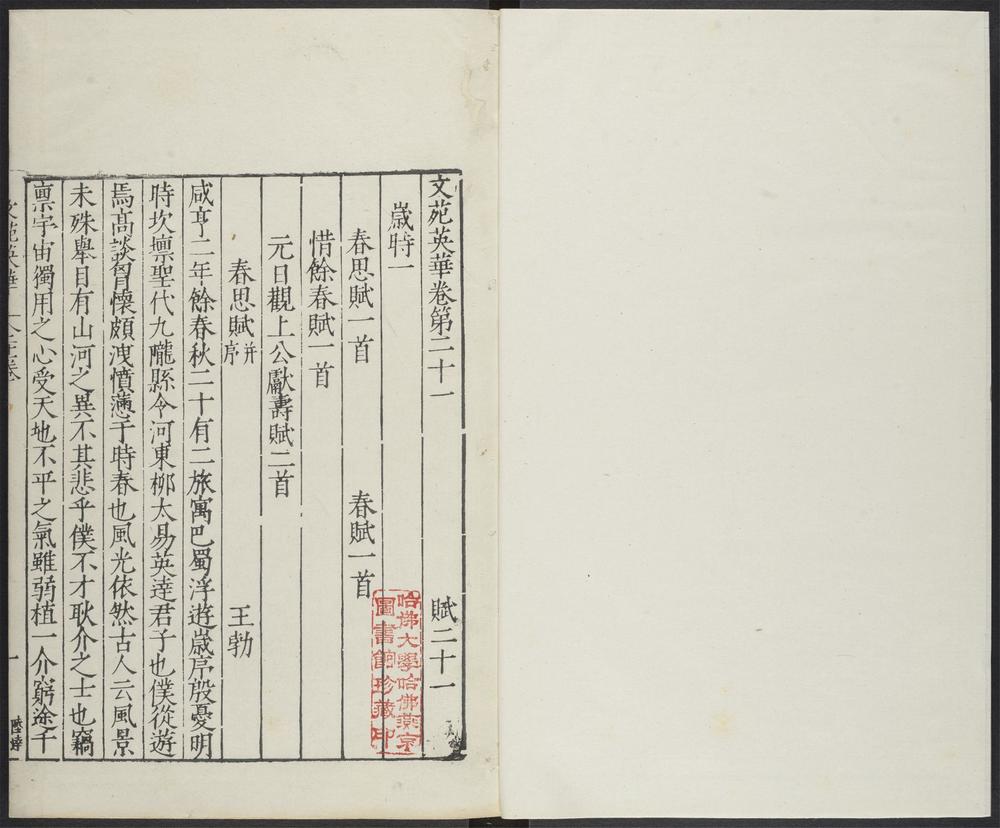 文苑英華卷第二十一 賦二十一
歲時一
春思賦一首 春賦一首
惜餘春賦一首
元日觀上公獻壽賦二首
春思賦并序 王勃
咸亨二年餘春秋二十有二旅寓巴蜀浮遊歲序殷憂明
時坎壈聖代九隴縣令河東柳太易英達君子也僕從遊
焉高談胷懷頗洩憤懣于時春也風光依然古人云風景
未殊舉目有山河之異不其悲乎僕不才耿介之士也竊
禀宇宙獨用之心受天地不平之氣雖弱植一介窮途千
文苑英華
一
哈佛大學哈佛燕京
圖書館珍藏印